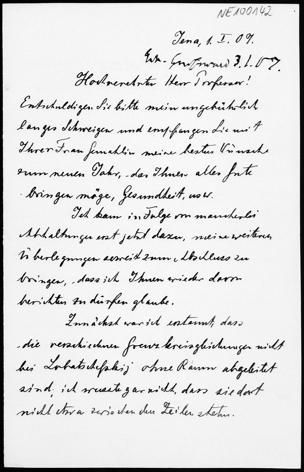 NE100142
Jena, 1. I. 09.
3. I. 09.
Hochverehrter Herr Professor!
Entschuldigen Sie bitte mein ungebührlich
langes Schweigen und empfangen Sie mit
Ihrer Frau Gemahlin meine besten Wünsche
zum neuen Jahr, das Ihnen alles Gute
bringen möge, Gesundheit, usw.
Ich kam in Folge von mancherlei
Abhaltungen erst jetzt dazu, meine weiteren
Überlegungen soweit zum Abschluss zu
bringen, dass ich Ihnen wieder davon
berichten zu dürfen glaube.
Zunächst war ich erstaunt, dass
die verschiedenen Grenzkreisgleichungen nicht
bei Lobatschefskij ohne Raum abgeleitet
sind, ich weiss gar nicht, dass sie dort
nicht etwa zwischen den Zeilen stehn.